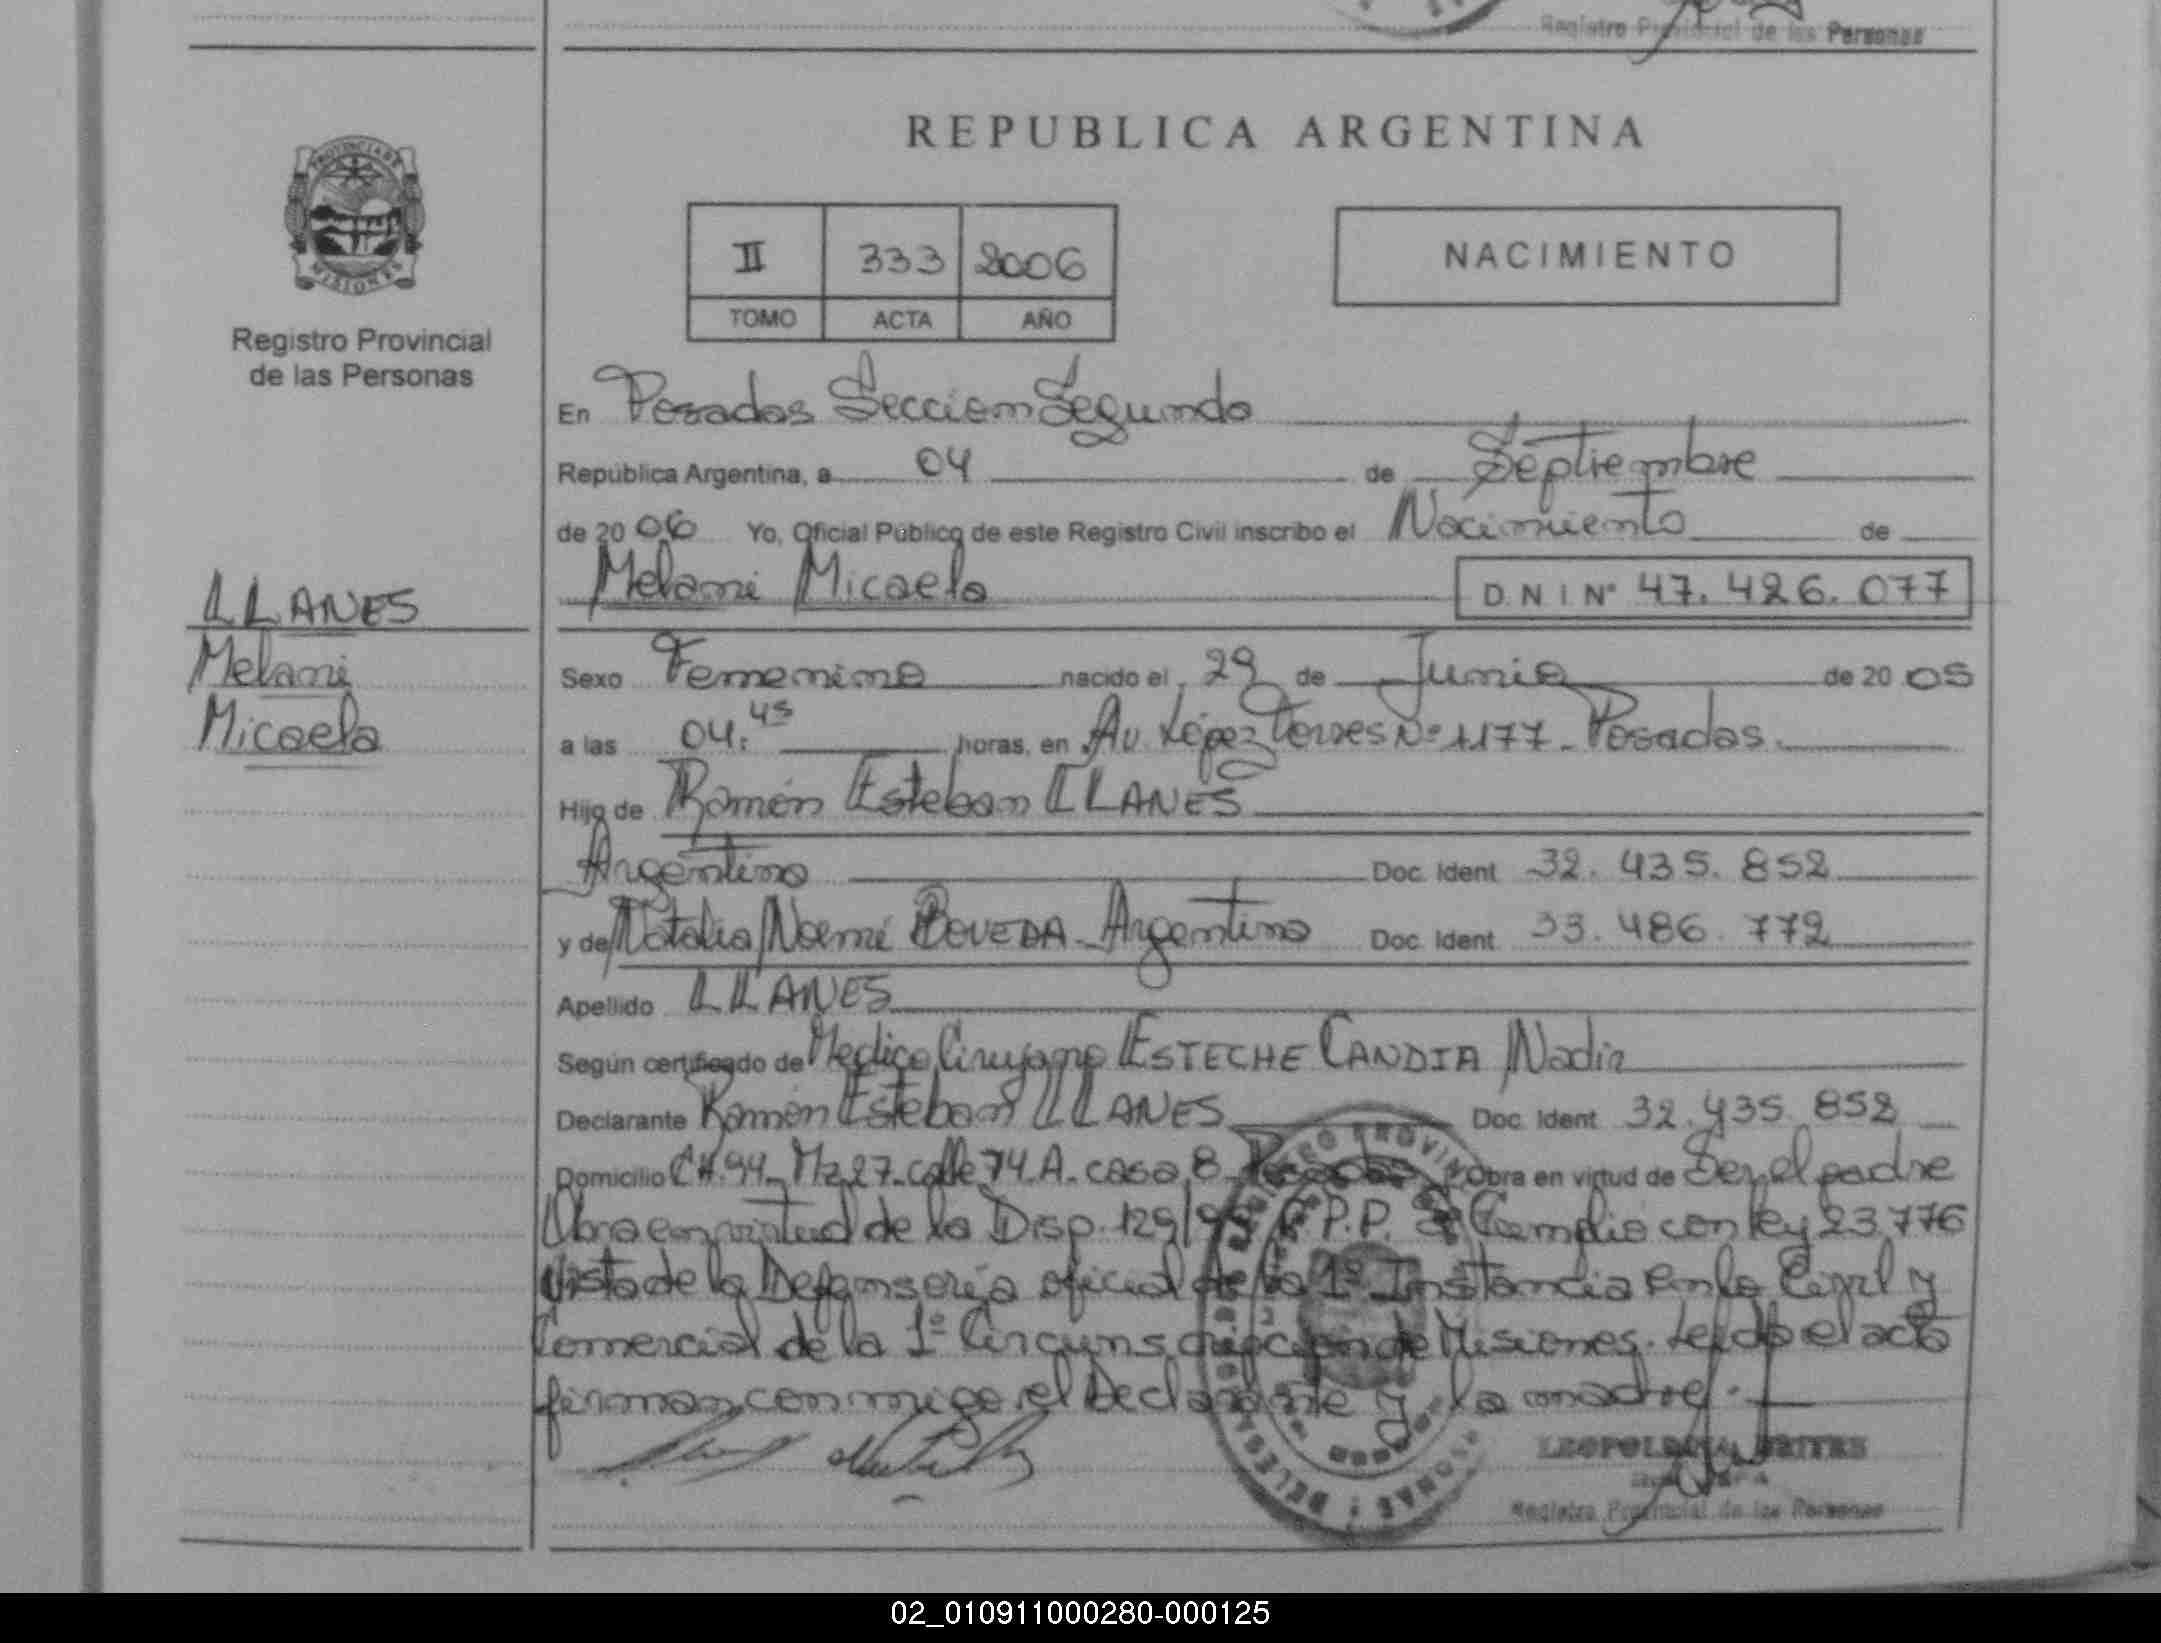 Registro Provincial de las Personas
REPUBLICA ARGENTINA
PROVINCIA DE
MISIONES
Registro Provincial
de las Personas
II 333 2006
TOMO ACTA AÑO
NACIMIENTO
En Posadas Seccion Segunda
República Argentina, a 04 de Septiembre
de 20 06 Yo, Oficial Público de este Registro Civil inscribo el Nacimiento de
Melani Micaela D.N.I. Nº 47.426.077
LLANES
Melani
Micaela
Sexo Femenino nacido el 29 de Junio de 20 05
a las 04:45 horas, en Av López Torres Nº 1177 - Posadas.
Hijo de Ramón Esteban LLANES
Argentino Doc. Ident. 32.435.852
y de Natalia Noemí BOVEDA - Argentina Doc. Ident. 33.486.772
Apellido LLANES
Según certificado de Medico Cirujano ESTECHE CANDIA Nadir
Declarante Ramón Esteban LLANES Doc. Ident. 32.435.852
Domicilio CH.94 - Mz 27 - calle 74.A - casa 8 - Posadas Obra en virtud de Ser el padre
Obra en virtud de la Disp. 129/ Cumplio con ley 23.776
Vista de la Defensoría oficial de la 1º Instancia en lo Civil y
Comercial de la 1º Circunscripcion de Misiones. Leida el acta
firman conmigo el Declarante y la madre.
Registro Provincial de las Personas
02_010911000280-000125